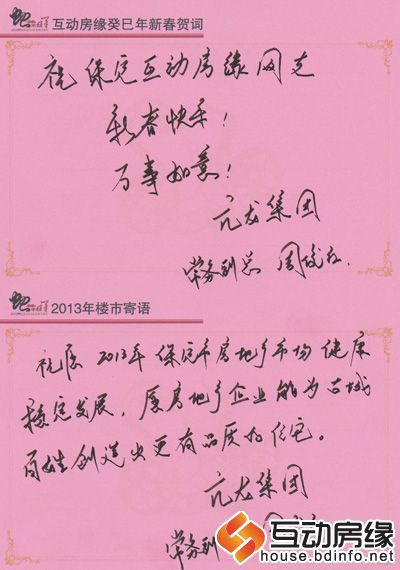 互动房缘癸巳年新春贺词
祝保定互动房缘网友
新春快乐!
万事如意!
元龙集团
常务副总 周
2013年楼市寄语
祝愿2013年保定市房地产市场健康
稳定发展,愿房地产企业能为古城
百姓创造出更有品质的住宅。
元龙集团
常务副
互动房缘
house.bdinfo.net